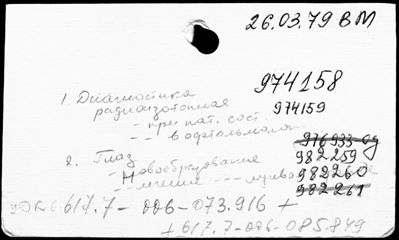 26.03.79 ВМ
974158
1. Диагностика
радиоизотопная
974159
- при пат. сост.
- - в офтальмолог
976933-69
2. Глаз
982259
- Новообразование
982260
- лечение - - -
982261
УДК 617.7-006-073.916 +
+ 617.7-006-085.849